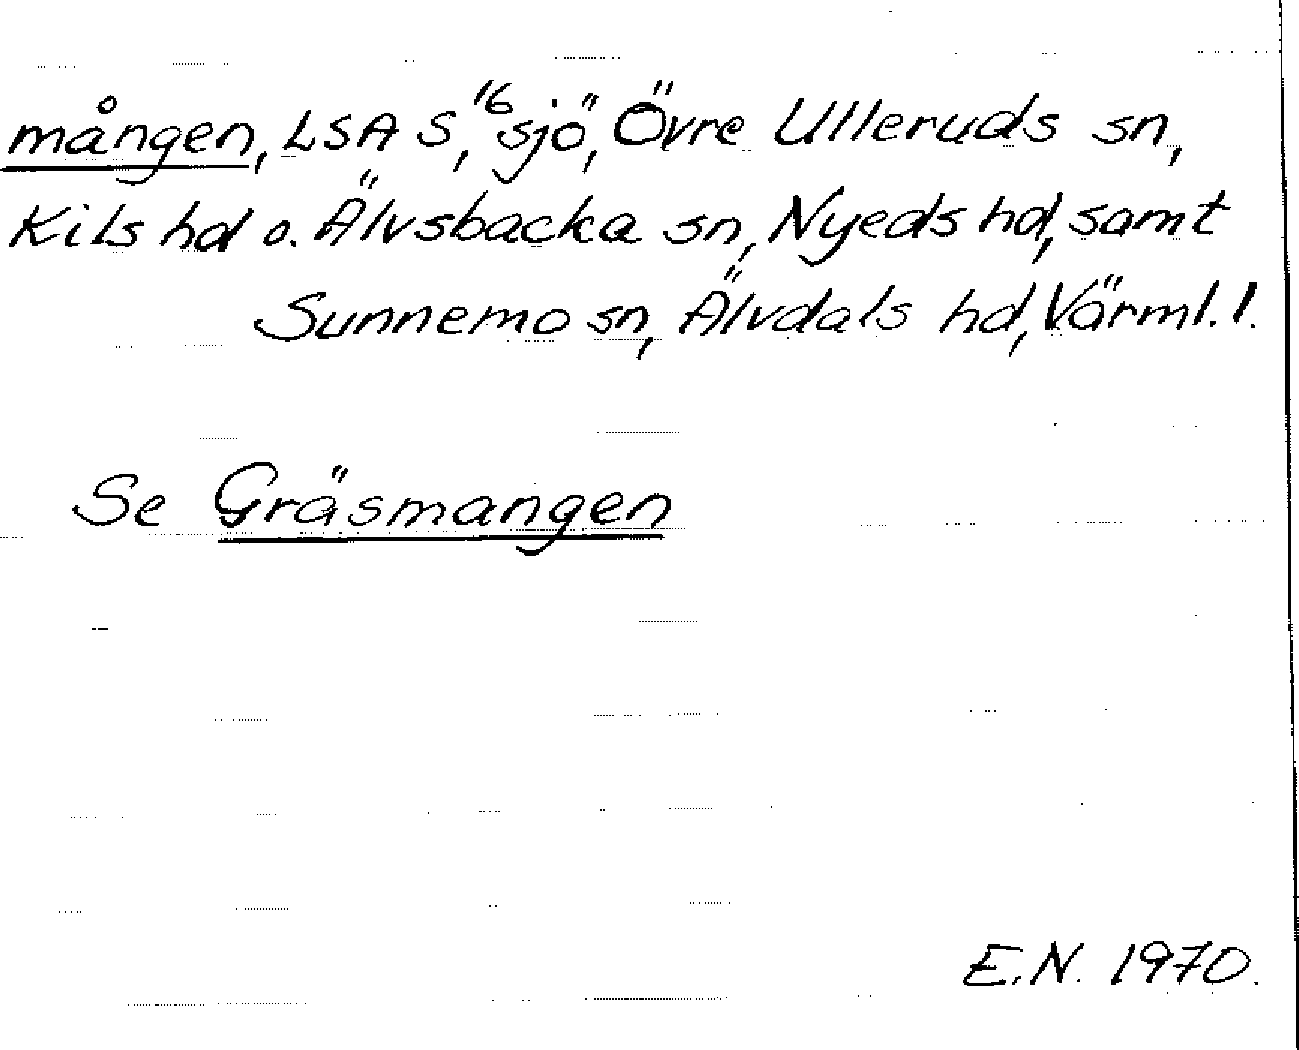 mången, LSA S, 16 sjö, Övre Ulleruds sn,
Kils hd o. Älvsbacka sn, Nyeds hd, samt
Sunnemo sn, Älvdals hd, Värml. l.
Se Gräsmangen
E.N. 1970.